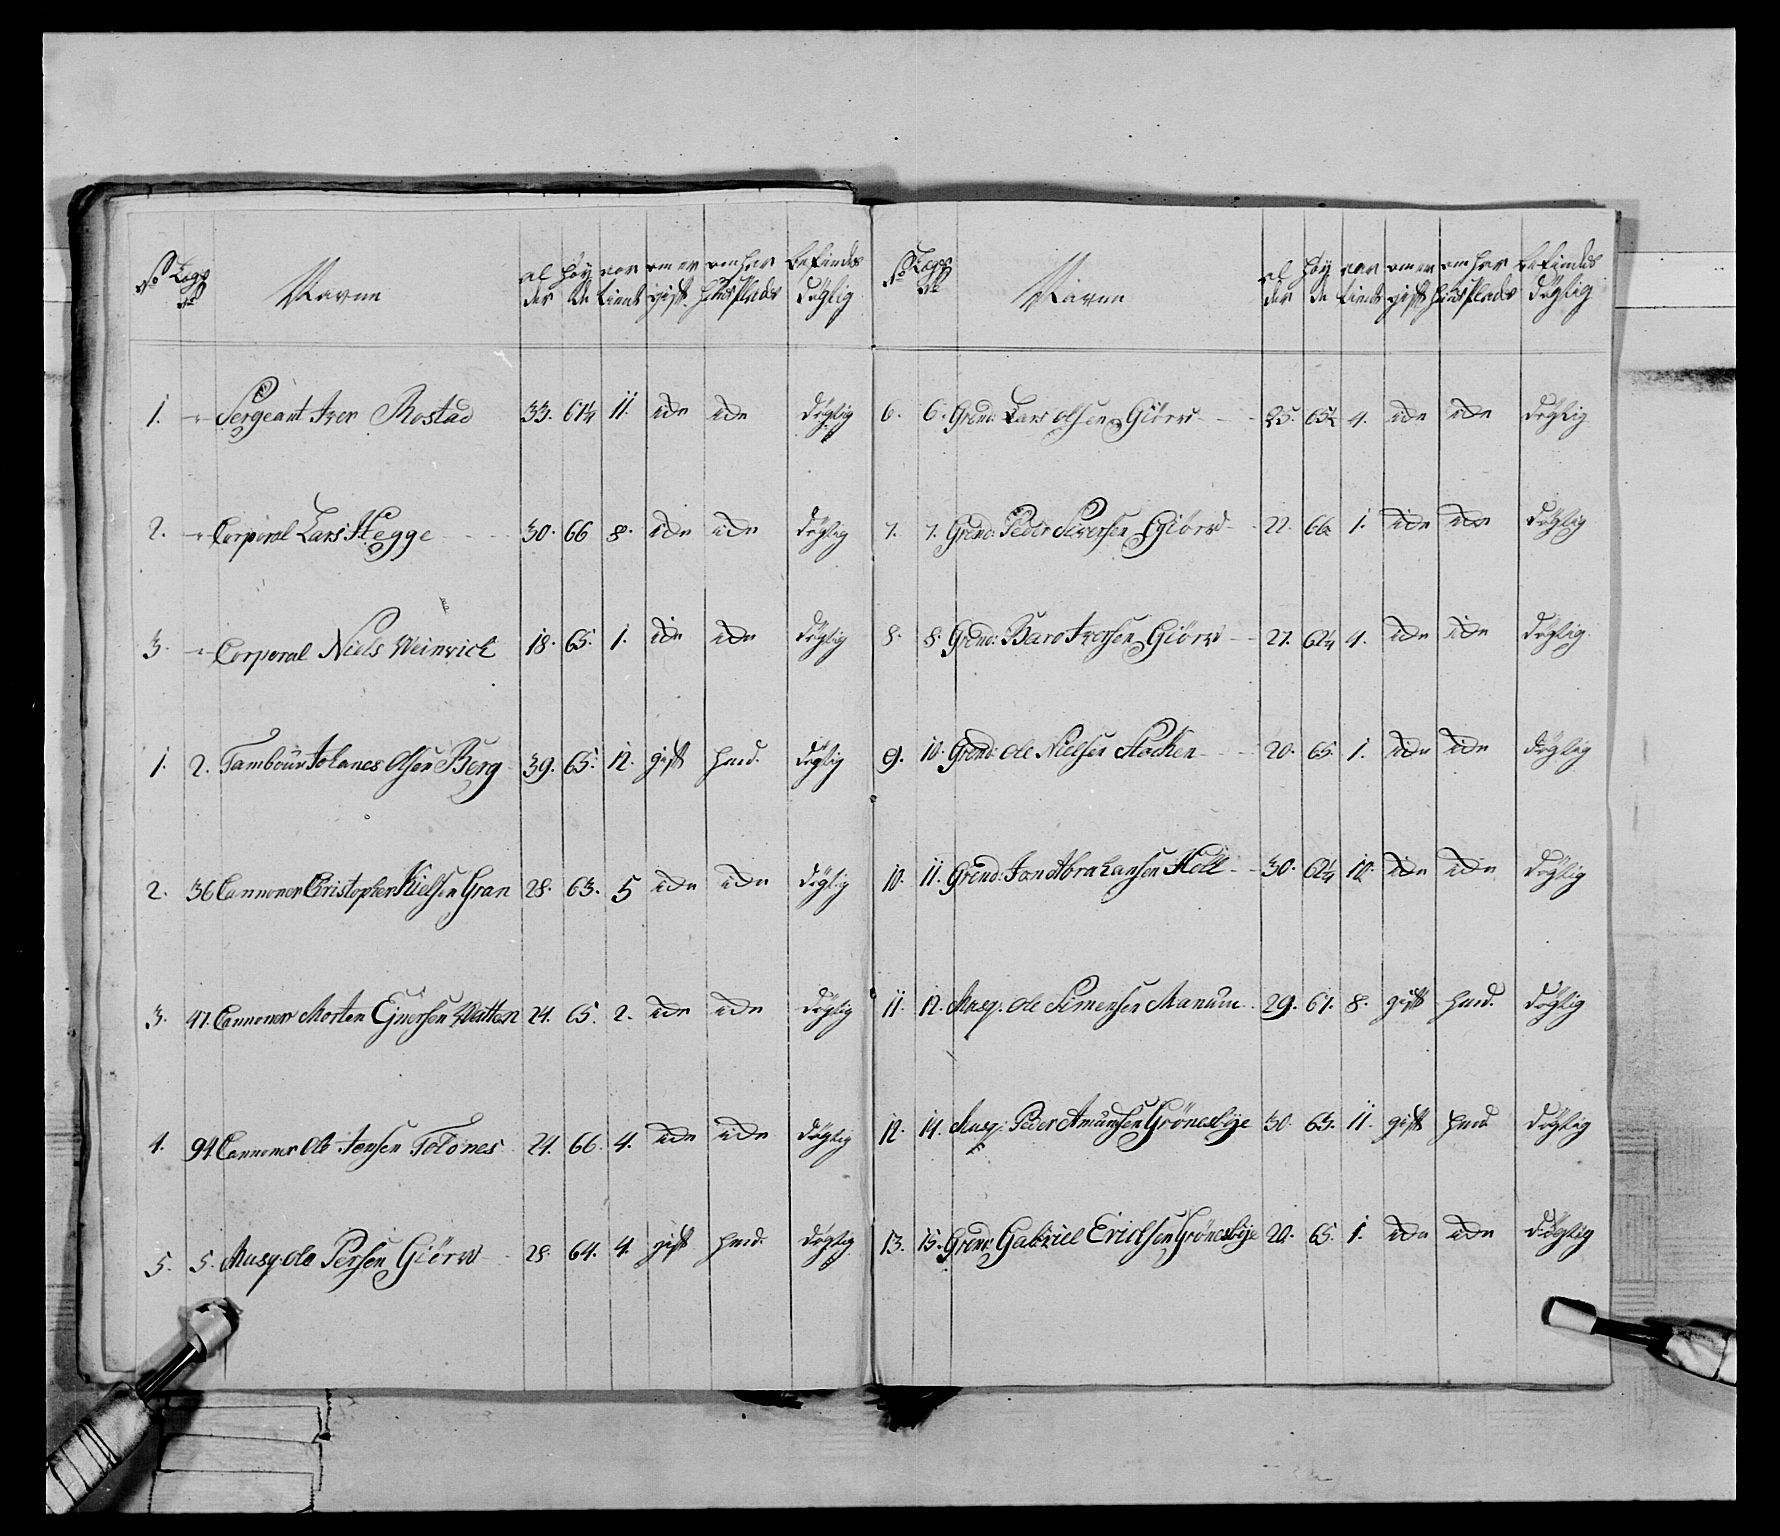 No Lægs No Navne al der Høy de har tient om er gift om har huus Plads befindes dygtig
1. Sergeant Iver Rostad 33. 61¼ 11. ide ide dygtig
2. Corporal Lars Hegge 30. 66 8. ide ide dygtig
3. Corporal Niels Weinrich 18. 65. 1. ide ide dygtig
1. 2. Tambour Iohanes Olsen Berg 39. 65. 12. gift hmd. dygtig
2. 36 Cannoner Christopher Nielsen Gran 28. 63. 5 ide ide dygtig
3. 47. Cannoner Morten Watten 24. 65. 2. ide ide dygtig
4. 94 Cannoner Ole Iensen Tolones 24. 66. 4. ide ide dygtig
5. 5. Musq: Ole Persen Giörv 28. 64. 4. gift hmd. dygtig
No Lægs No Navne al der Høy de har tient om er gift om har huus Plads befindes dygtig
6. 6. Grend: Lars Olsen Giörv 25. 65½ 4. ide ide dygtig
7. 7. Grend: Peder Siversen Giörv 22. 66. 1. ide ide dygtig
8. 8. Grend: Baro Iversen Giörv 27. 62¼ 4. ide ide dygtig
9. 10. Grend: Ole Nielsen Hacken 20. 65. 1. ide ide dygtig
10. 11. Grend: Ion Abrahansen Holl 30. 62¼ 10. ide ide dygtig
11. 12. Musq: Ole Simensen Manum 29. 67. 8. gift hmd. dygtig
12. 14. Musq: Peder Amunsen Grönesbye 30. 63. 11. gift hmd dygtig
13. 15. Grend: Gabriel Erichsen Grönesbye 20. 65. 1. ide ide dygtig